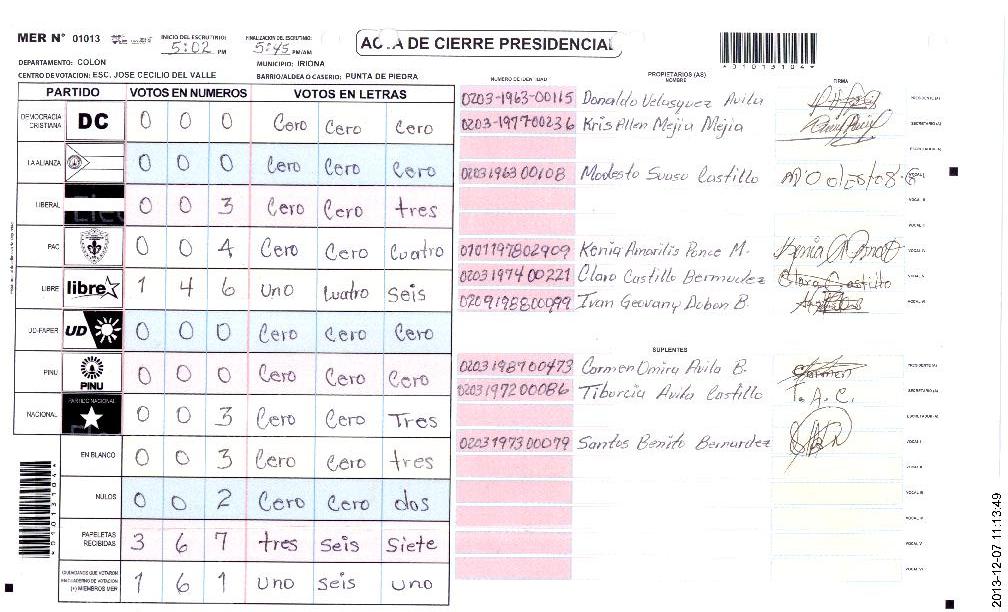 MER N° 01013 INICIO DEL ESCRUTINIO: 5:02 PM FINALIZACION DEL ESCRUTINIO: 5:45 PM/AM ACTA DE CIERRE PRESIDENCIAL *101013104*
DEPARTAMENTO: COLON MUNICIPIO: IRIONA
CENTRO DE VOTACION: ESC. JOSE CECILIO DEL VALLE BARRIO/ALDEA O CASERIO: PUNTA DE PIEDRA
NUMERO DE IDENTIDAD PROPIETARIOS (AS) NOMBRE FIRMA
PARTIDO VOTOS EN NUMEROS VOTOS EN LETRAS
DEMOCRACIA CRISTIANA DC 0 0 0 Cero Cero Cero
LA ALIANZA 0 0 0 Cero Cero Cero
LIBERAL 0 0 3 Cero Cero tres
PAC 0 0 4 Cero Cero Cuatro
LIBRE libre 1 4 6 Uno Cuatro Seis
UD-FAPER UD 0 0 0 Cero Cero Cero
PINU PINU 0 0 0 Cero Cero Cero
NACIONAL PARTIDO NACIONAL 0 0 3 Cero Cero Tres
EN BLANCO 0 0 3 Cero Cero tres
NULOS 0 0 2 Cero Cero dos
PAPELETAS RECIBIDAS 3 6 7 tres Seis Siete
CIUDADANOS QUE VOTARON EN CUADERNO DE VOTACION (+) MIEMBROS MER 1 6 1 uno seis uno
0203-1963-00115 Donaldo Velasquez Avila PRESIDENTE (A)
0203-1977-00236 Kris Allen Mejia Mejia SECRETARIO (A)
ESCRUTADOR (A)
0203196300108 Modesto Suaso Castillo VOCAL I
VOCAL II
VOCAL III
0701197802909 Kenia Amarilis Ponce M. VOCAL IV
0203197400221 Clara Castillo Bermudez Clara Castillo VOCAL V
0209198800099 Ivan Geovany Dubon B. VOCAL VI
SUPLENTES
0203198700473 Carmen Omira Avila B. Carmen PRESIDENTE (A)
0203199200086 Tiburcia Avila Castillo T. A. C. SECRETARIO (A)
ESCRUTADOR (A)
0203197300079 Santos Benito Bernardez VOCAL I
VOCAL II
VOCAL III
VOCAL IV
VOCAL V
VOCAL VI
*101013104*
2013-12-07 11:13:49